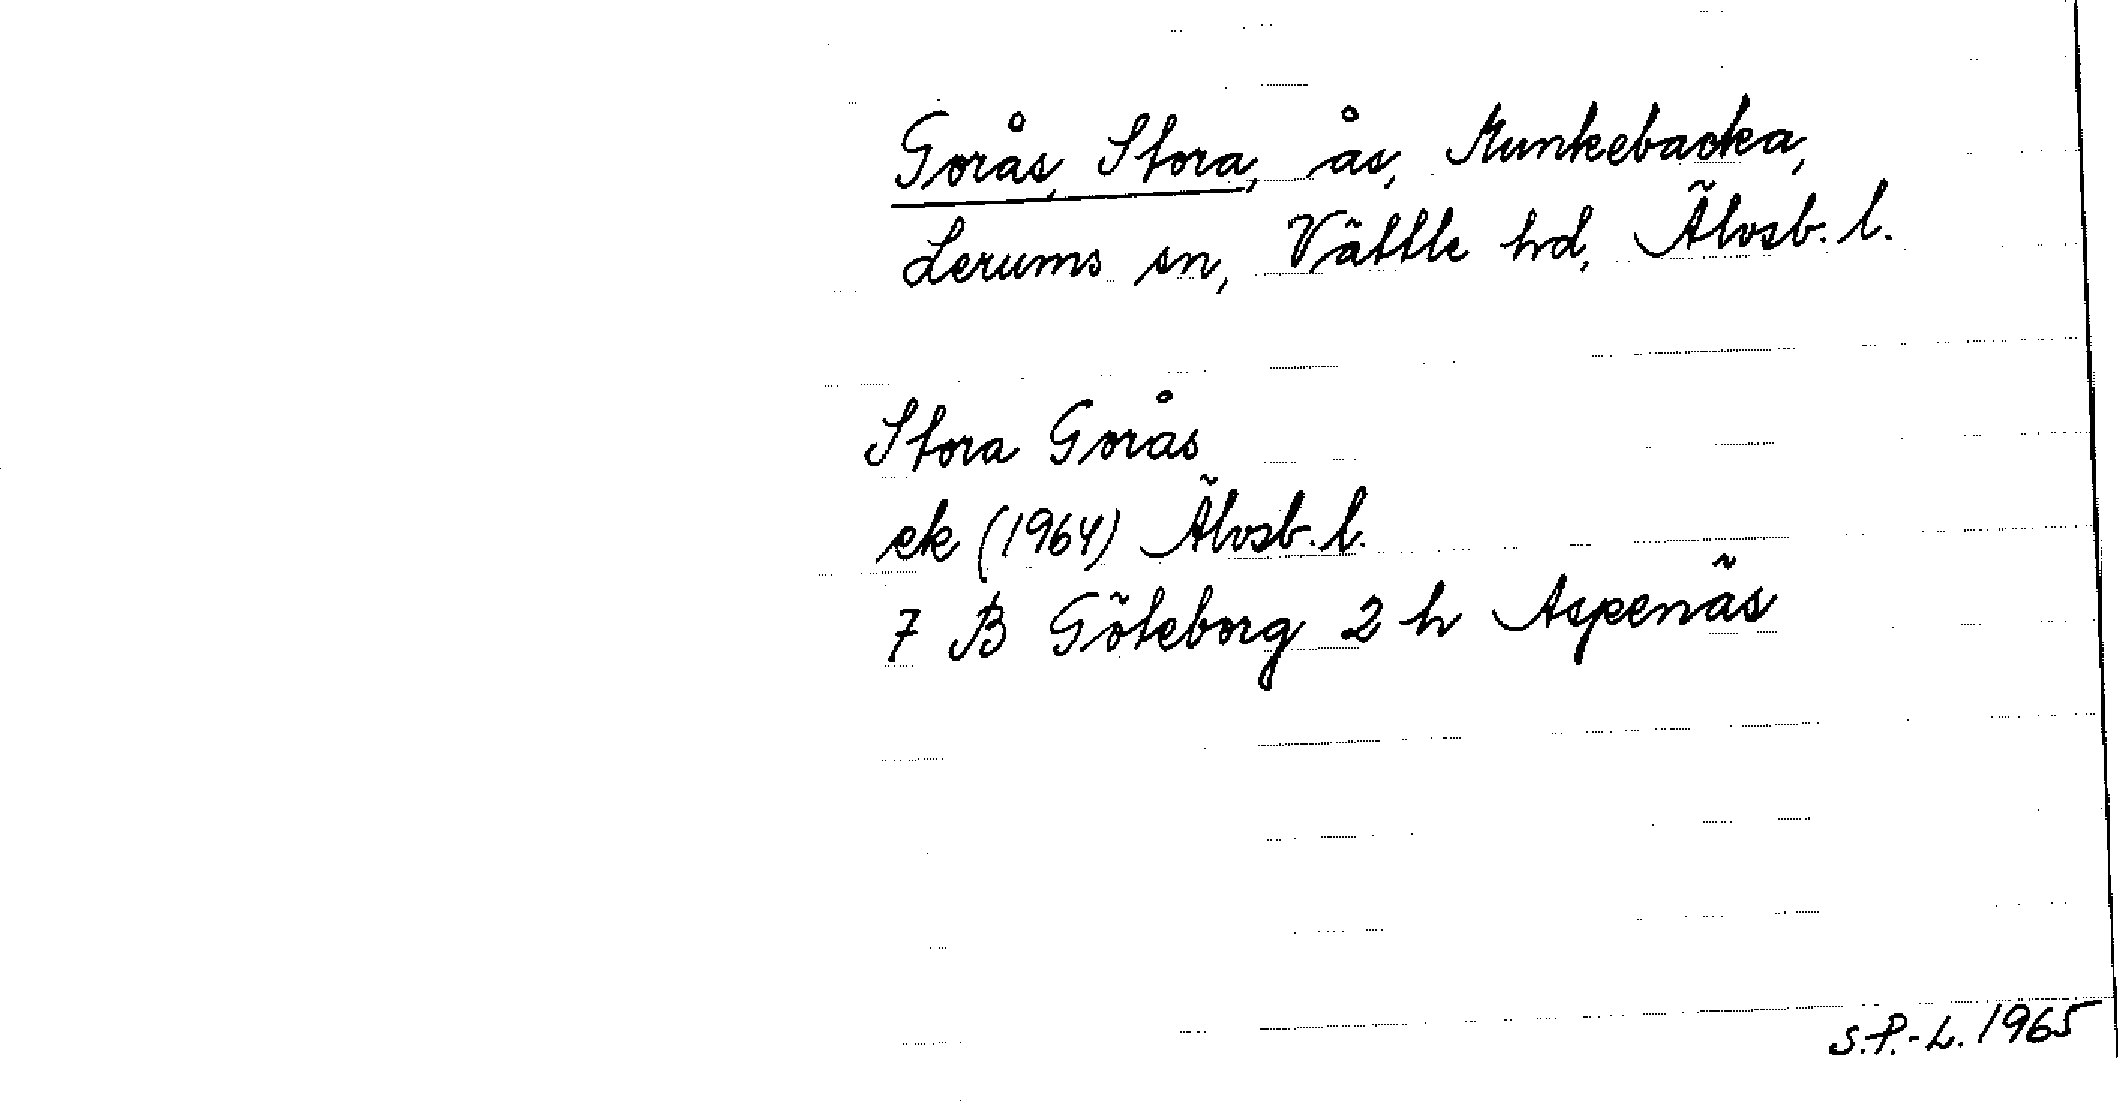 Gorås, Stora, ås, Munkebacka,
Lerums sn, Vättle hd, Älvsb. l.
Stora Gorås
ek (1964) Älvsb. l.
7 B Göteborg 2 h Aspenäs
S.P.-L. 1965